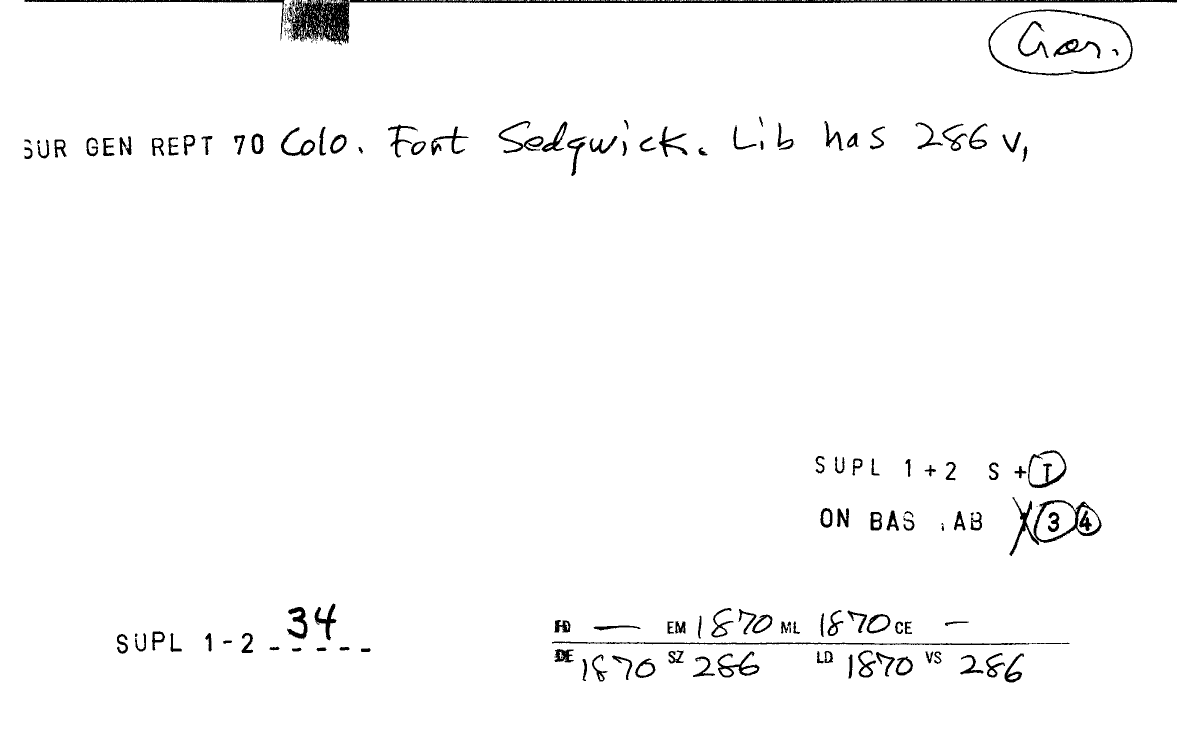 Gar.
SUR GEN REPT 70 Colo. Fort Sedgwick. Lib has 286 v,
SUPL 1+2 S + T
ON BAS . AB 3 4
SUPL 1-2 34 -----
FD — EM 1870 ML 1870 CE —
DE 1870 SZ 286 LD 1870 VS 286